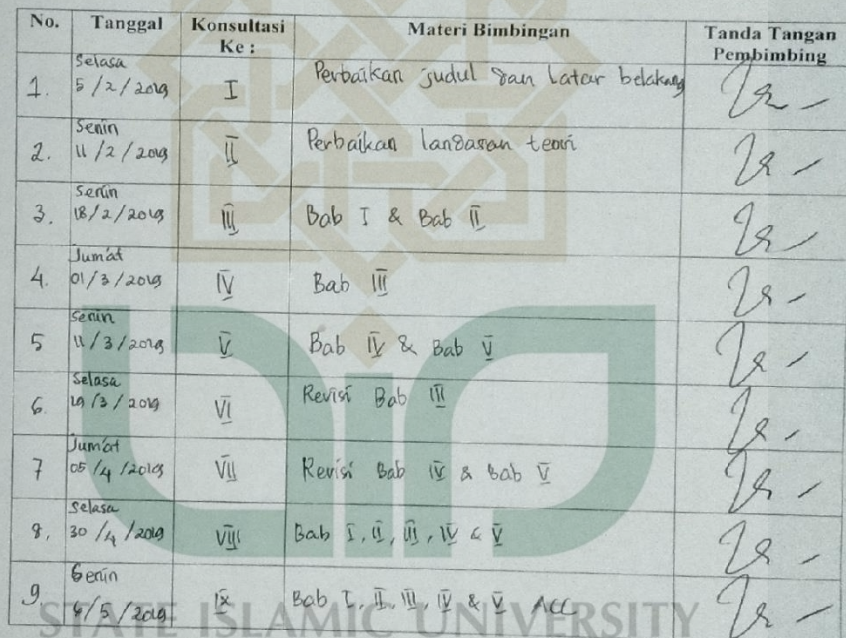 No. Tanggal Konsultasi Ke : Materi Bimbingan Tanda Tangan Pembimbing
1. Selasa 5/2/2019 I Perbaikan judul dan Latar belakang
2. Senin 11/2/2019 II Perbaikan landasan teori
3. Senin 18/2/2019 III Bab I & Bab II
4. Jum'at 01/3/2019 IV Bab III
5 Senin 11/3/2019 V Bab IV & Bab V
6. Selasa 19/3/2019 VI Revisi Bab III
7 Jum'at 05/4/2019 VII Revisi Bab IV & Bab V
8. Selasa 30/4/2019 VIII Bab I, II, III, IV & V
9 Senin 6/5/2019 IX Bab I, II, III, IV & V ACC
STATE ISLAMIC UNIVERSITY